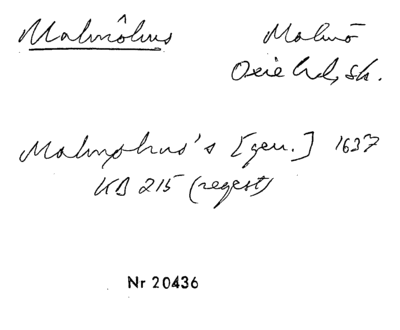 Malmöhus Malmö
Oxie hd, Sk.
Malmøhus's [gen.] 1637
KB 215 (regest)
Nr 20436